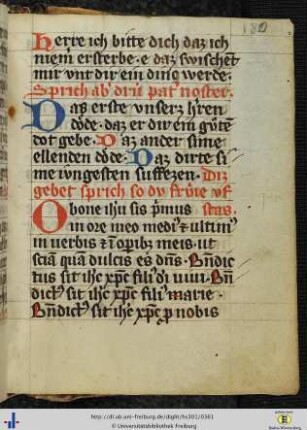 180
Herre ich bitte dich daz ich
niem ersterbe · e daz zwischēt
mir vnt dir ein dinc werde.
Sprich ab' driv pat' noster.
Daz erste vnserz h'ren
dode. daz er dir ein gv̊ten
dot gebe. Daz ander sime
ellenden dode. Daz dirte si
me ivngesten suffezen. Diz
gebet sprich so dv frv̊te vf
O bone ihu sis p'mus stas.
in ore meo medi' et ultim'
in uerbis et ōnibȝ meis. ut
sciā quā dulcis es dn̄s. Bn̄dic
tus sit ihc xp̄c fili' di uiui. Bn̄
dict' sit ihc xp̄c fili' marie.
Bn̄dict' sit ihc xp̄c p nobis
http://dl.ub.uni-freiburg.de/diglit/hs301/0361
© Universitätsbibliothek Freiburg
Baden-Württemberg